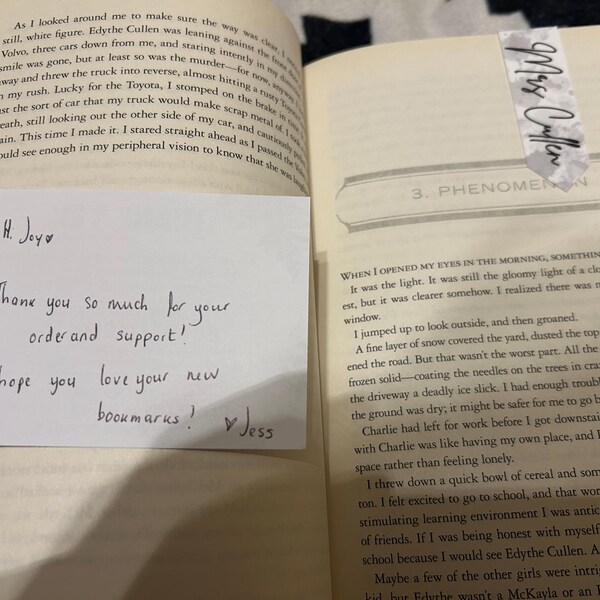 As I looked around me to make sure the way was clear, I
still, white figure. Edythe Cullen was leaning against the front
Volvo, three cars down from me, and staring intently in my
smile was gone, but at least so was the murder—for now, anyway.
away and threw the truck into reverse, almost hitting a rusty Toyota
n my rush. Lucky for the Toyota, I stomped on the brake in time.
ust the sort of car that my truck would make scrap metal of. I took
eath, still looking out the other side of my car, and cautiously
ain. This time I made it. I stared straight ahead as I passed the
ould see enough in my peripheral vision to know that she was
H. Joy
Thank you so much for your
order and support!
hope you love your new
bookmarks!
Jess
Mrs Cullen
3. PHENOMENON
WHEN I OPENED MY EYES IN THE MORNING, SOMETHIN
It was the light. It was still the gloomy light of a clo
est, but it was clearer somehow. I realized there was n
window.
I jumped up to look outside, and then groaned.
A fine layer of snow covered the yard, dusted the top
ened the road. But that wasn't the worst part. All the
frozen solid—coating the needles on the trees in cra
the driveway a deadly ice slick. I had enough troub
the ground was dry; it might be safer for me to go b
Charlie had left for work before I got downstai
with Charlie was like having my own place, and I
space rather than feeling lonely.
I threw down a quick bowl of cereal and som
ton. I felt excited to go to school, and that wor
stimulating learning environment I was antic
of friends. If I was being honest with myself
school because I would see Edythe Cullen. A
Maybe a few of the other girls were intrig
kid, but Edythe wasn't a McKayla or an